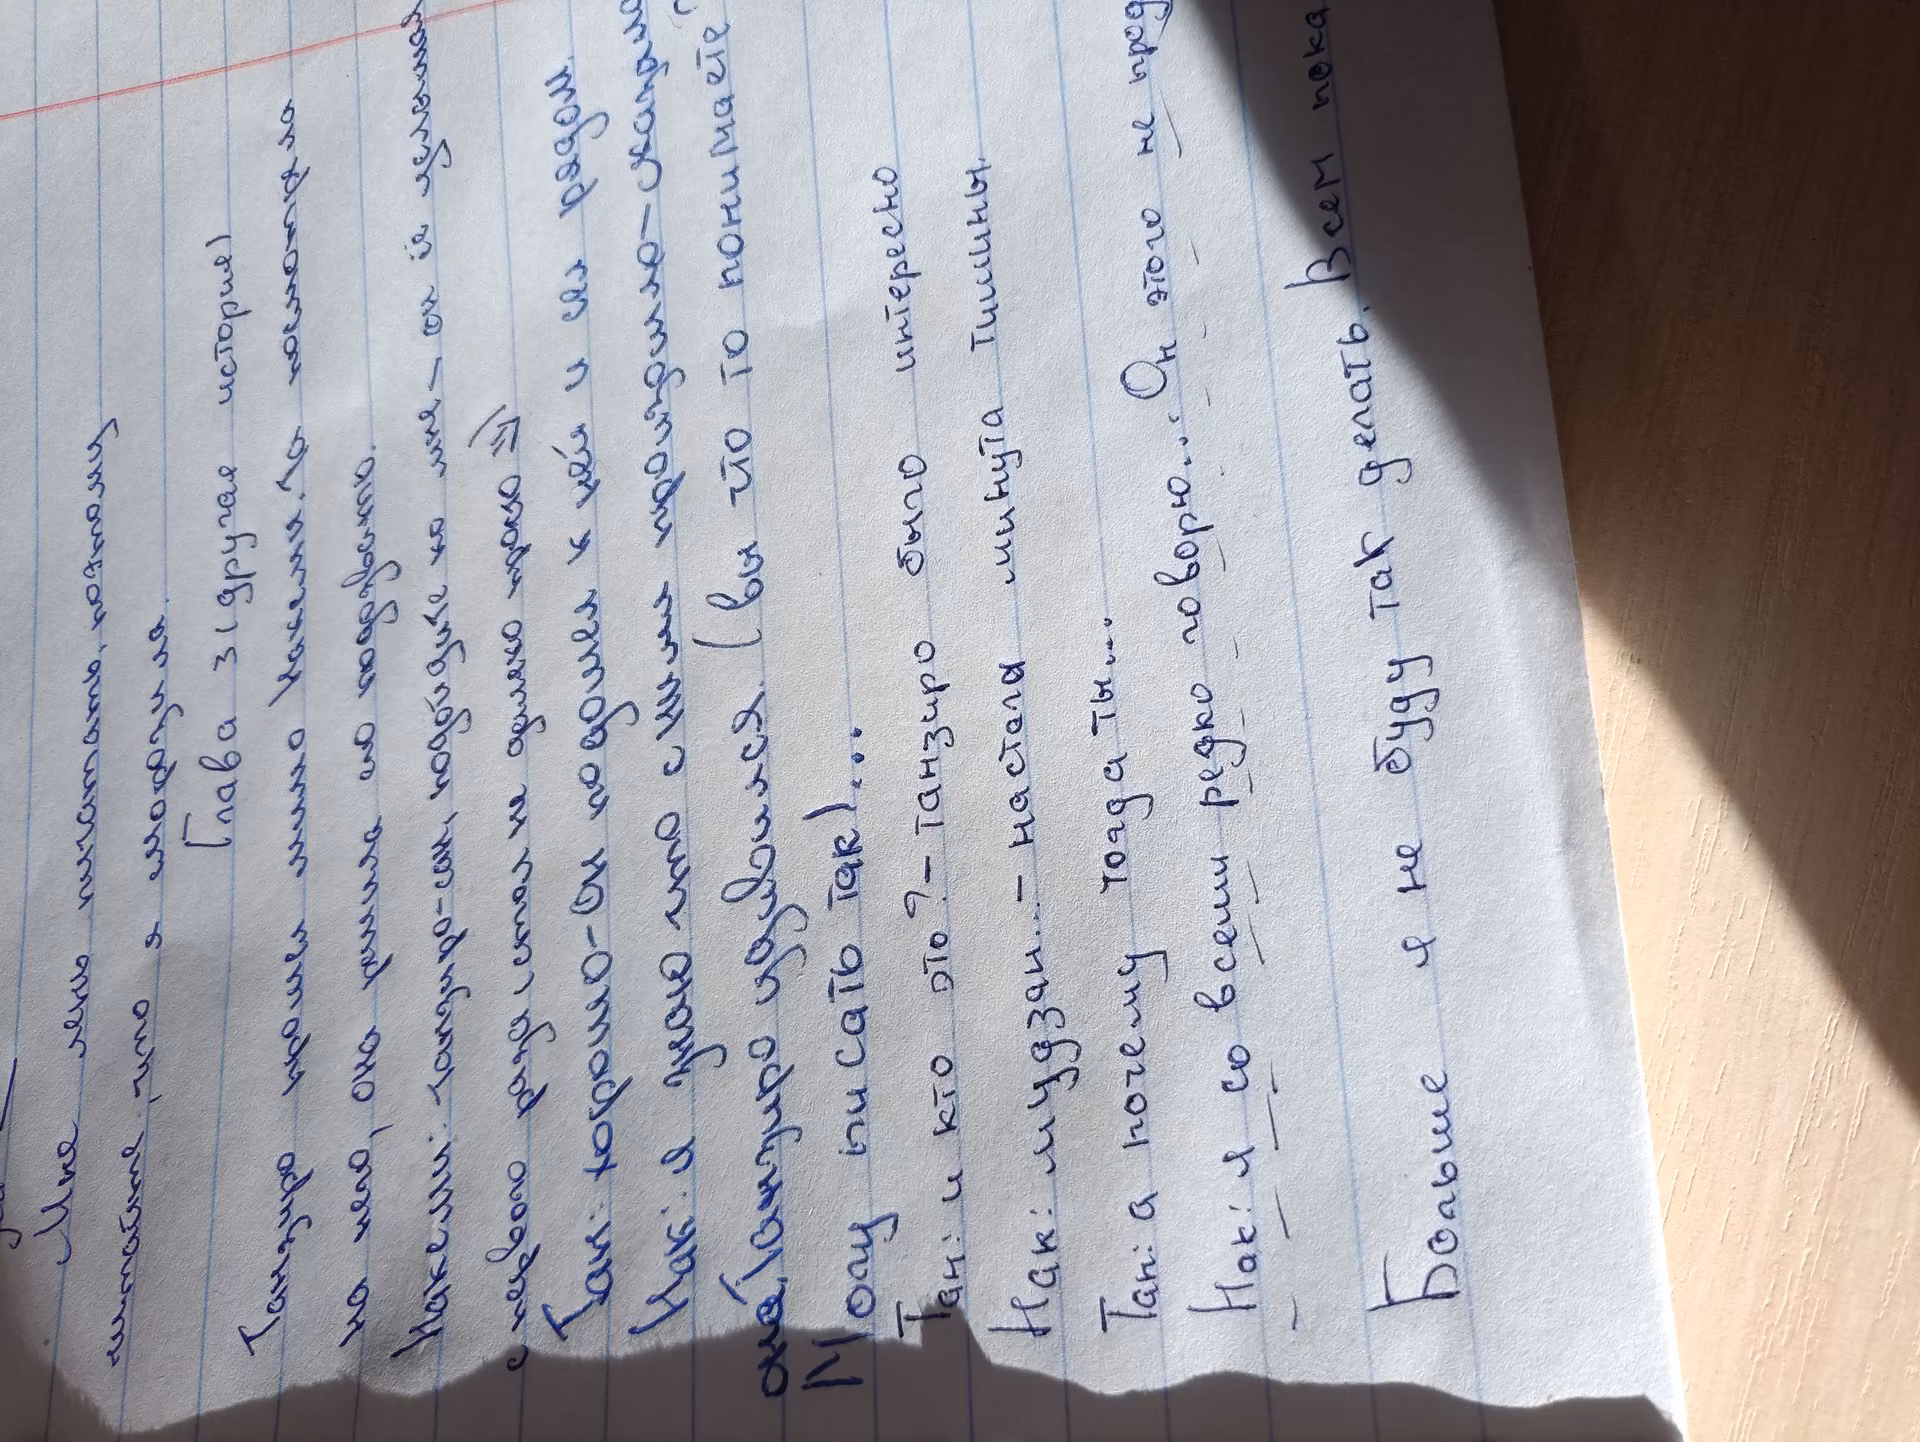 Мне лень писать, поэтому
читайте, что я смогрила.
Глава 3 (другая история)
Танзиро прошел мимо Накеми. Та посмотрела
на него, она решила его подразвить.
Накеми: танзиро-сан, подойдите ко мне - он её услышал
с первого раза (стоял не далеко прост =))
Тан: хорошо - Он подошел к ней и сел рядом.
Нак: я знаю что с ним произошло - сказала
она. Танзиро удивился. (вы что то понимаете?
Могу писать так)...
Тан: и кто это? - танзиро было интересно
Нак: мудзан... - настала минута тишины.
Тан: а почему тогда ты...
Нак: я со всеми редко говорю... Он этого не
Больше я не буду так делать. Всем пока